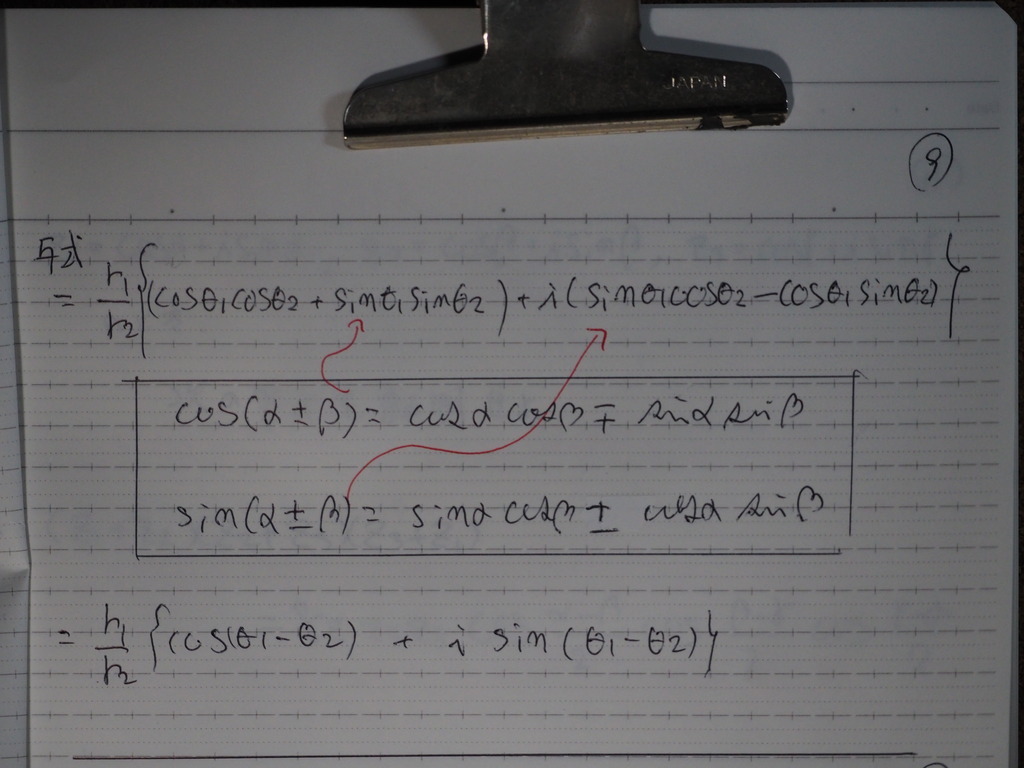 JAPAN
⑨
与式
= r₁/r₂ {(cosθ₁cosθ₂ + sinθ₁sinθ₂) + i(sinθ₁cosθ₂ − cosθ₁sinθ₂)}
cos(α ± β) = cosα cosβ ∓ sinα sinβ
sin(α ± β) = sinα cosβ ± cosα sinβ
= r₁/r₂ {cos(θ₁ − θ₂) + i sin(θ₁ − θ₂)}